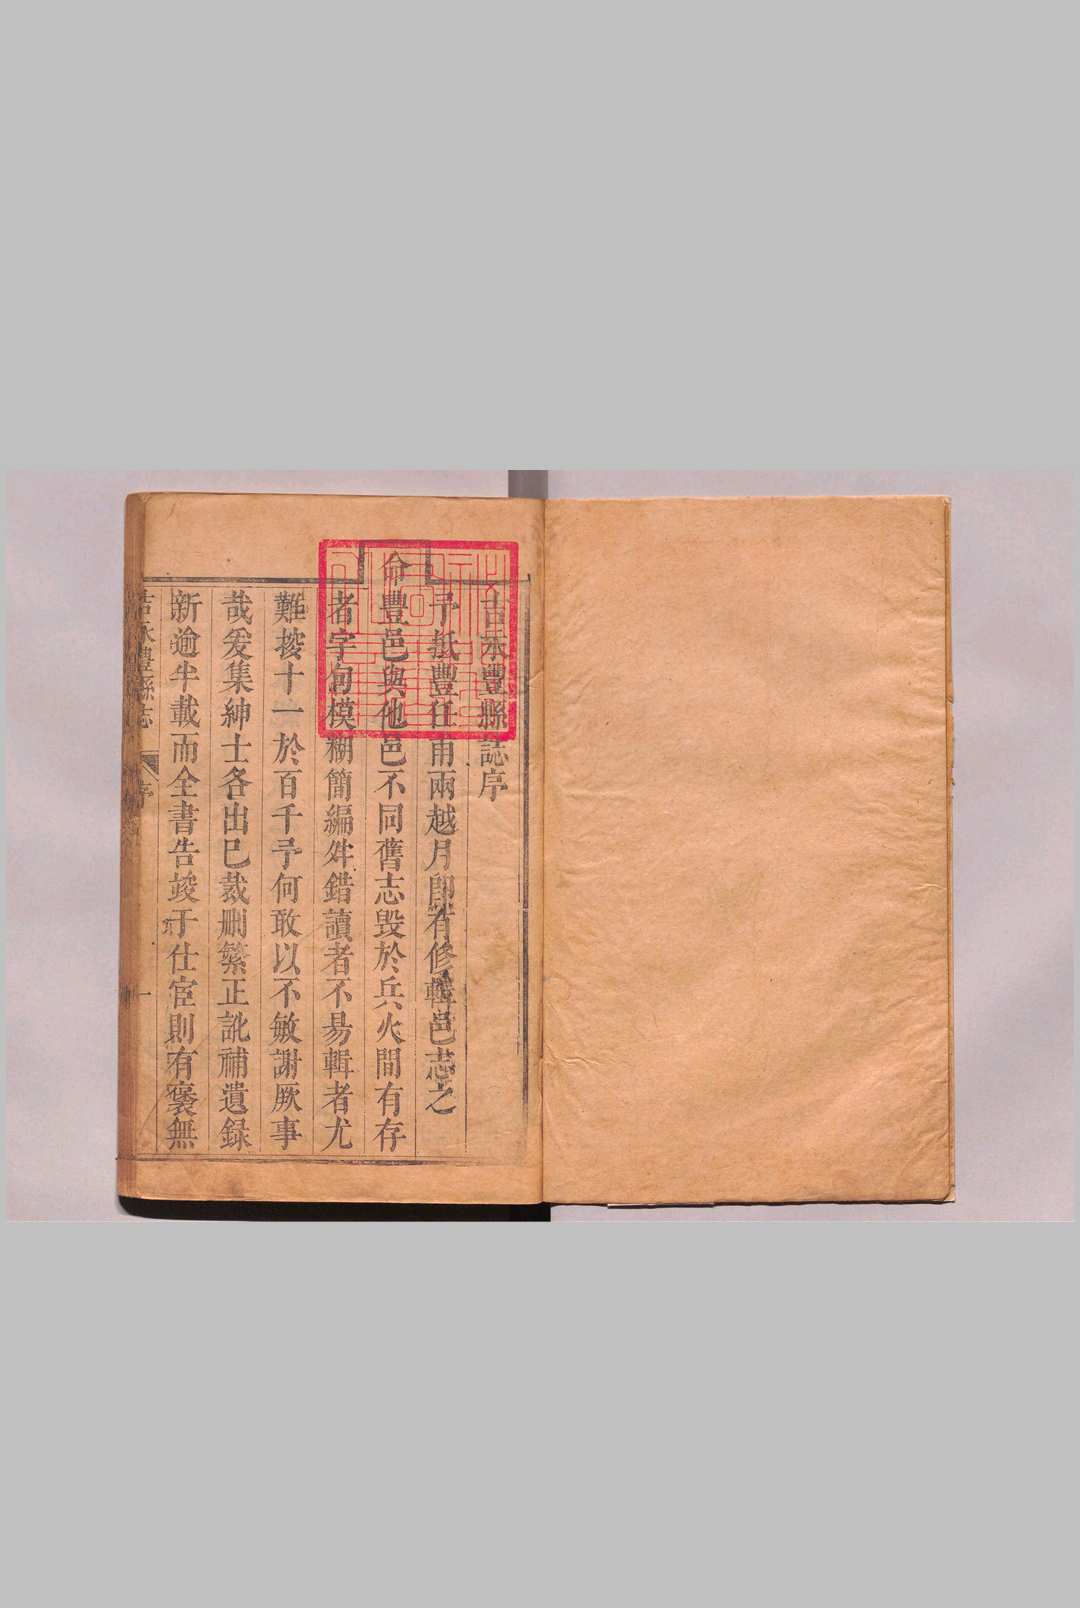 吉永豐縣誌序
予抵豐任甫兩越月即有修輯邑志之
命豐邑與他邑不同舊志毀於兵火間有存
者字句模糊簡編舛錯讀者不易輯者尤
難挍十一於百千予何敢以不敏謝厥事
哉爰集紳士各出已裁刪繁正訛補遺録
新逾半載而全書告竣于仕宦則有褒無
吉永豐縣志 序 一